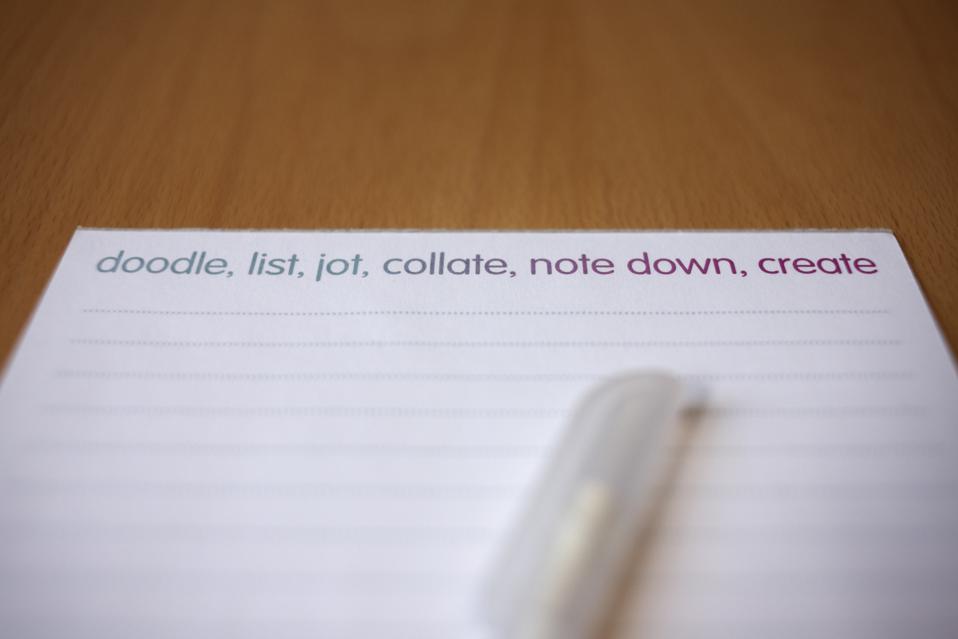 doodle, list, jot, collate, note down, create